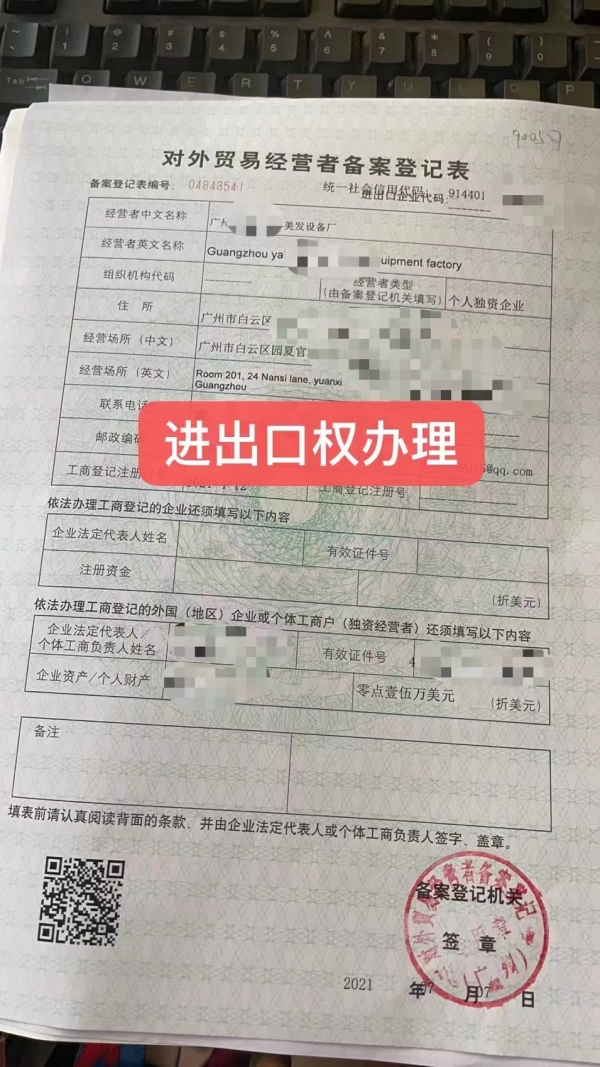 Tab
Q W E R T Y U I O P
90057
对外贸易经营者备案登记表
备案登记表编号: 04843541
统一社会信用代码: 914401
进出口企业代码:
经营者中文名称 广州 美发设备厂
经营者英文名称 Guangzhou ya uipment factory
组织机构代码 经营者类型
(由备案登记机关填写) 个人独资企业
住 所 广州市白云区
经营场所(中文) 广州市白云区园夏官
经营场所(英文) Room 201, 24 Nansi lane, yuanxi
Guangzhou
联系电话
邮政编码 @qq.com
进出口权办理
工商登记注册 工商登记注册号
依法办理工商登记的企业还须填写以下内容
企业法定代表人姓名 有效证件号
注册资金 (折美元)
依法办理工商登记的外国(地区)企业或个体工商户(独资经营者)还须填写以下内容
企业法定代表人/
个体工商负责人姓名 有效证件号 4
企业资产/个人财产 零点壹伍万美元 (折美元)
备注
填表前请认真阅读背面的条款,并由企业法定代表人或个体工商负责人签字、盖章。
对外贸易经营者备案登记
(广州)
备案登记机关
签 章
2021 年 07 月 07 日